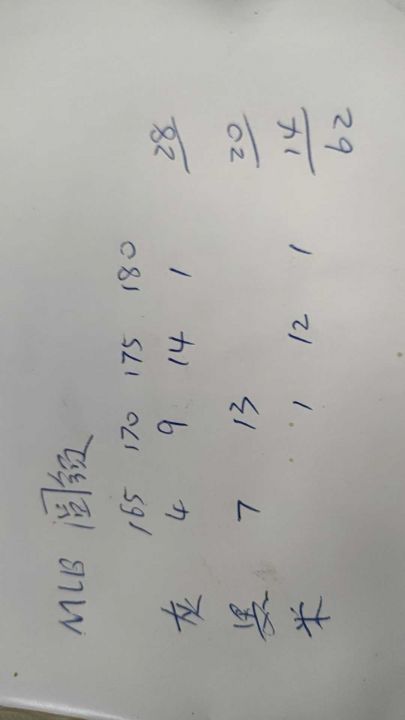 MLB 圆领
165 170 175 180
灰 4 9 14 1 28
黑 7 13 20
米 1 12 1 14
62